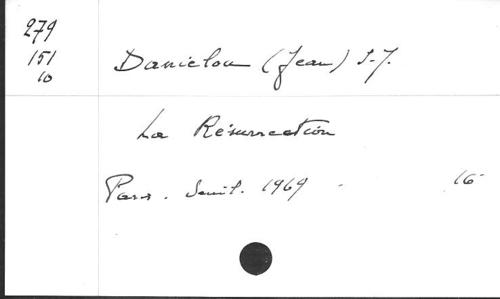 279
151
10
Danielou (Jean) S.J.
La Résurrection
Paris. Seuil. 1969 - 16